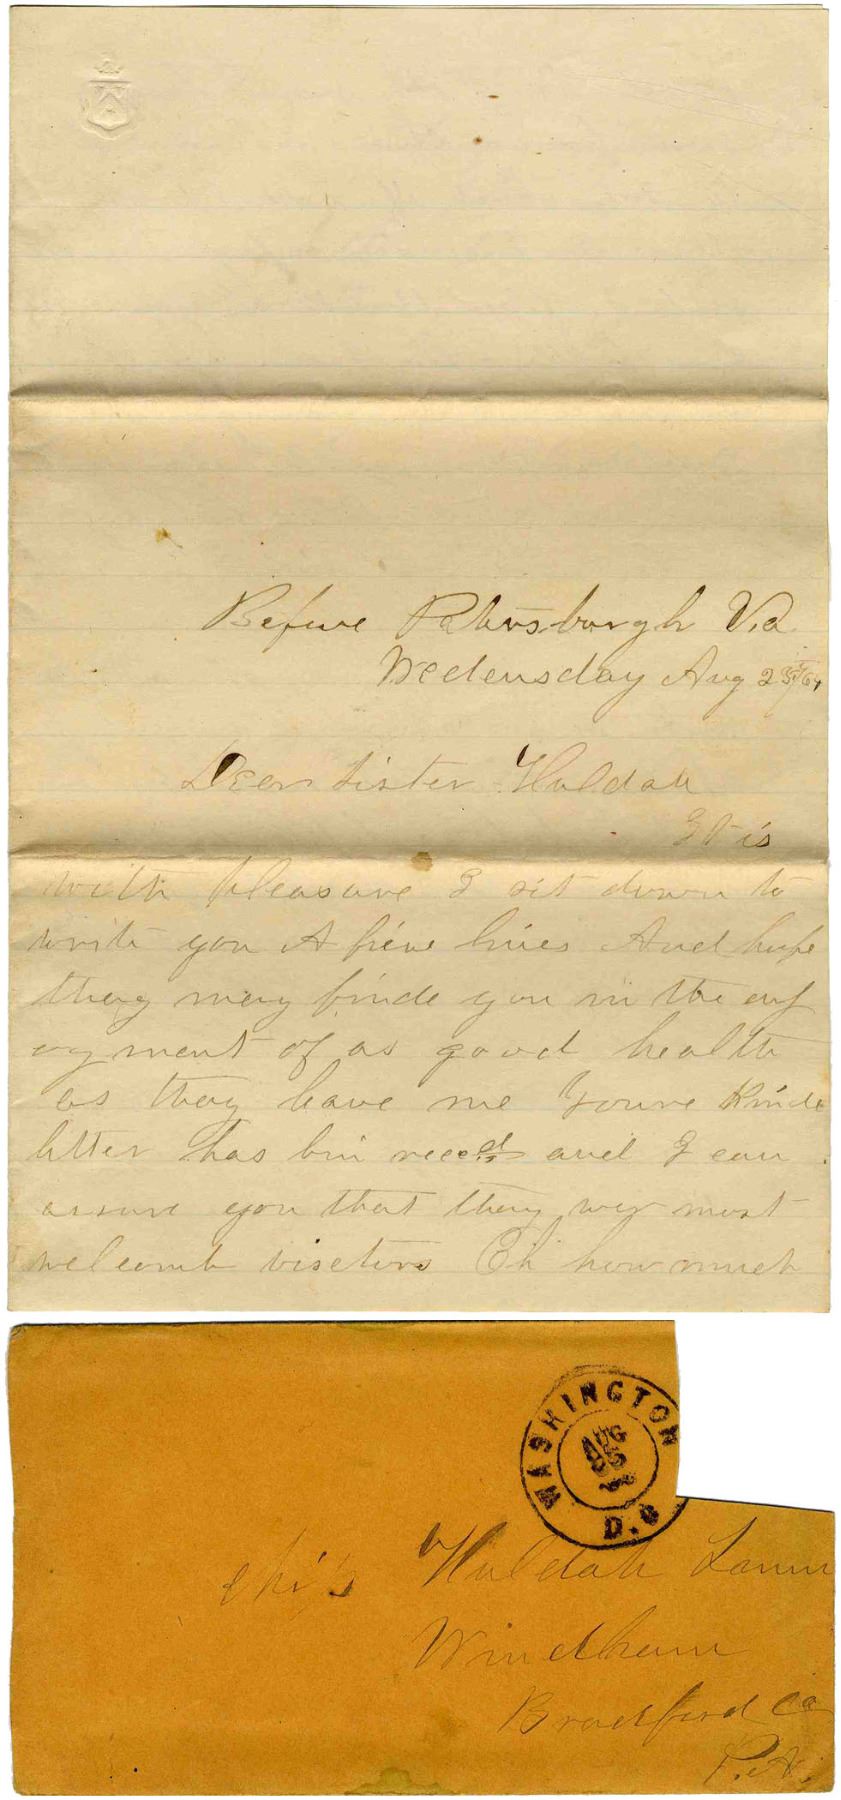 Before Petersburgh Va
Wedensday Aug 23d/64
Dear Sister Huldah
It is
with pleasure I sit down to
write you A fiew lines And hope
thay may finde you in the enj
oyment of as good health
as thay leave me Youre kinde
letter has bin reced and I can
assure you that thay wer most
welcomb viseters Oh how much
WASHINGTON
AUG
25
D.C
Huldah
Windham
Bradford Co
P.A.